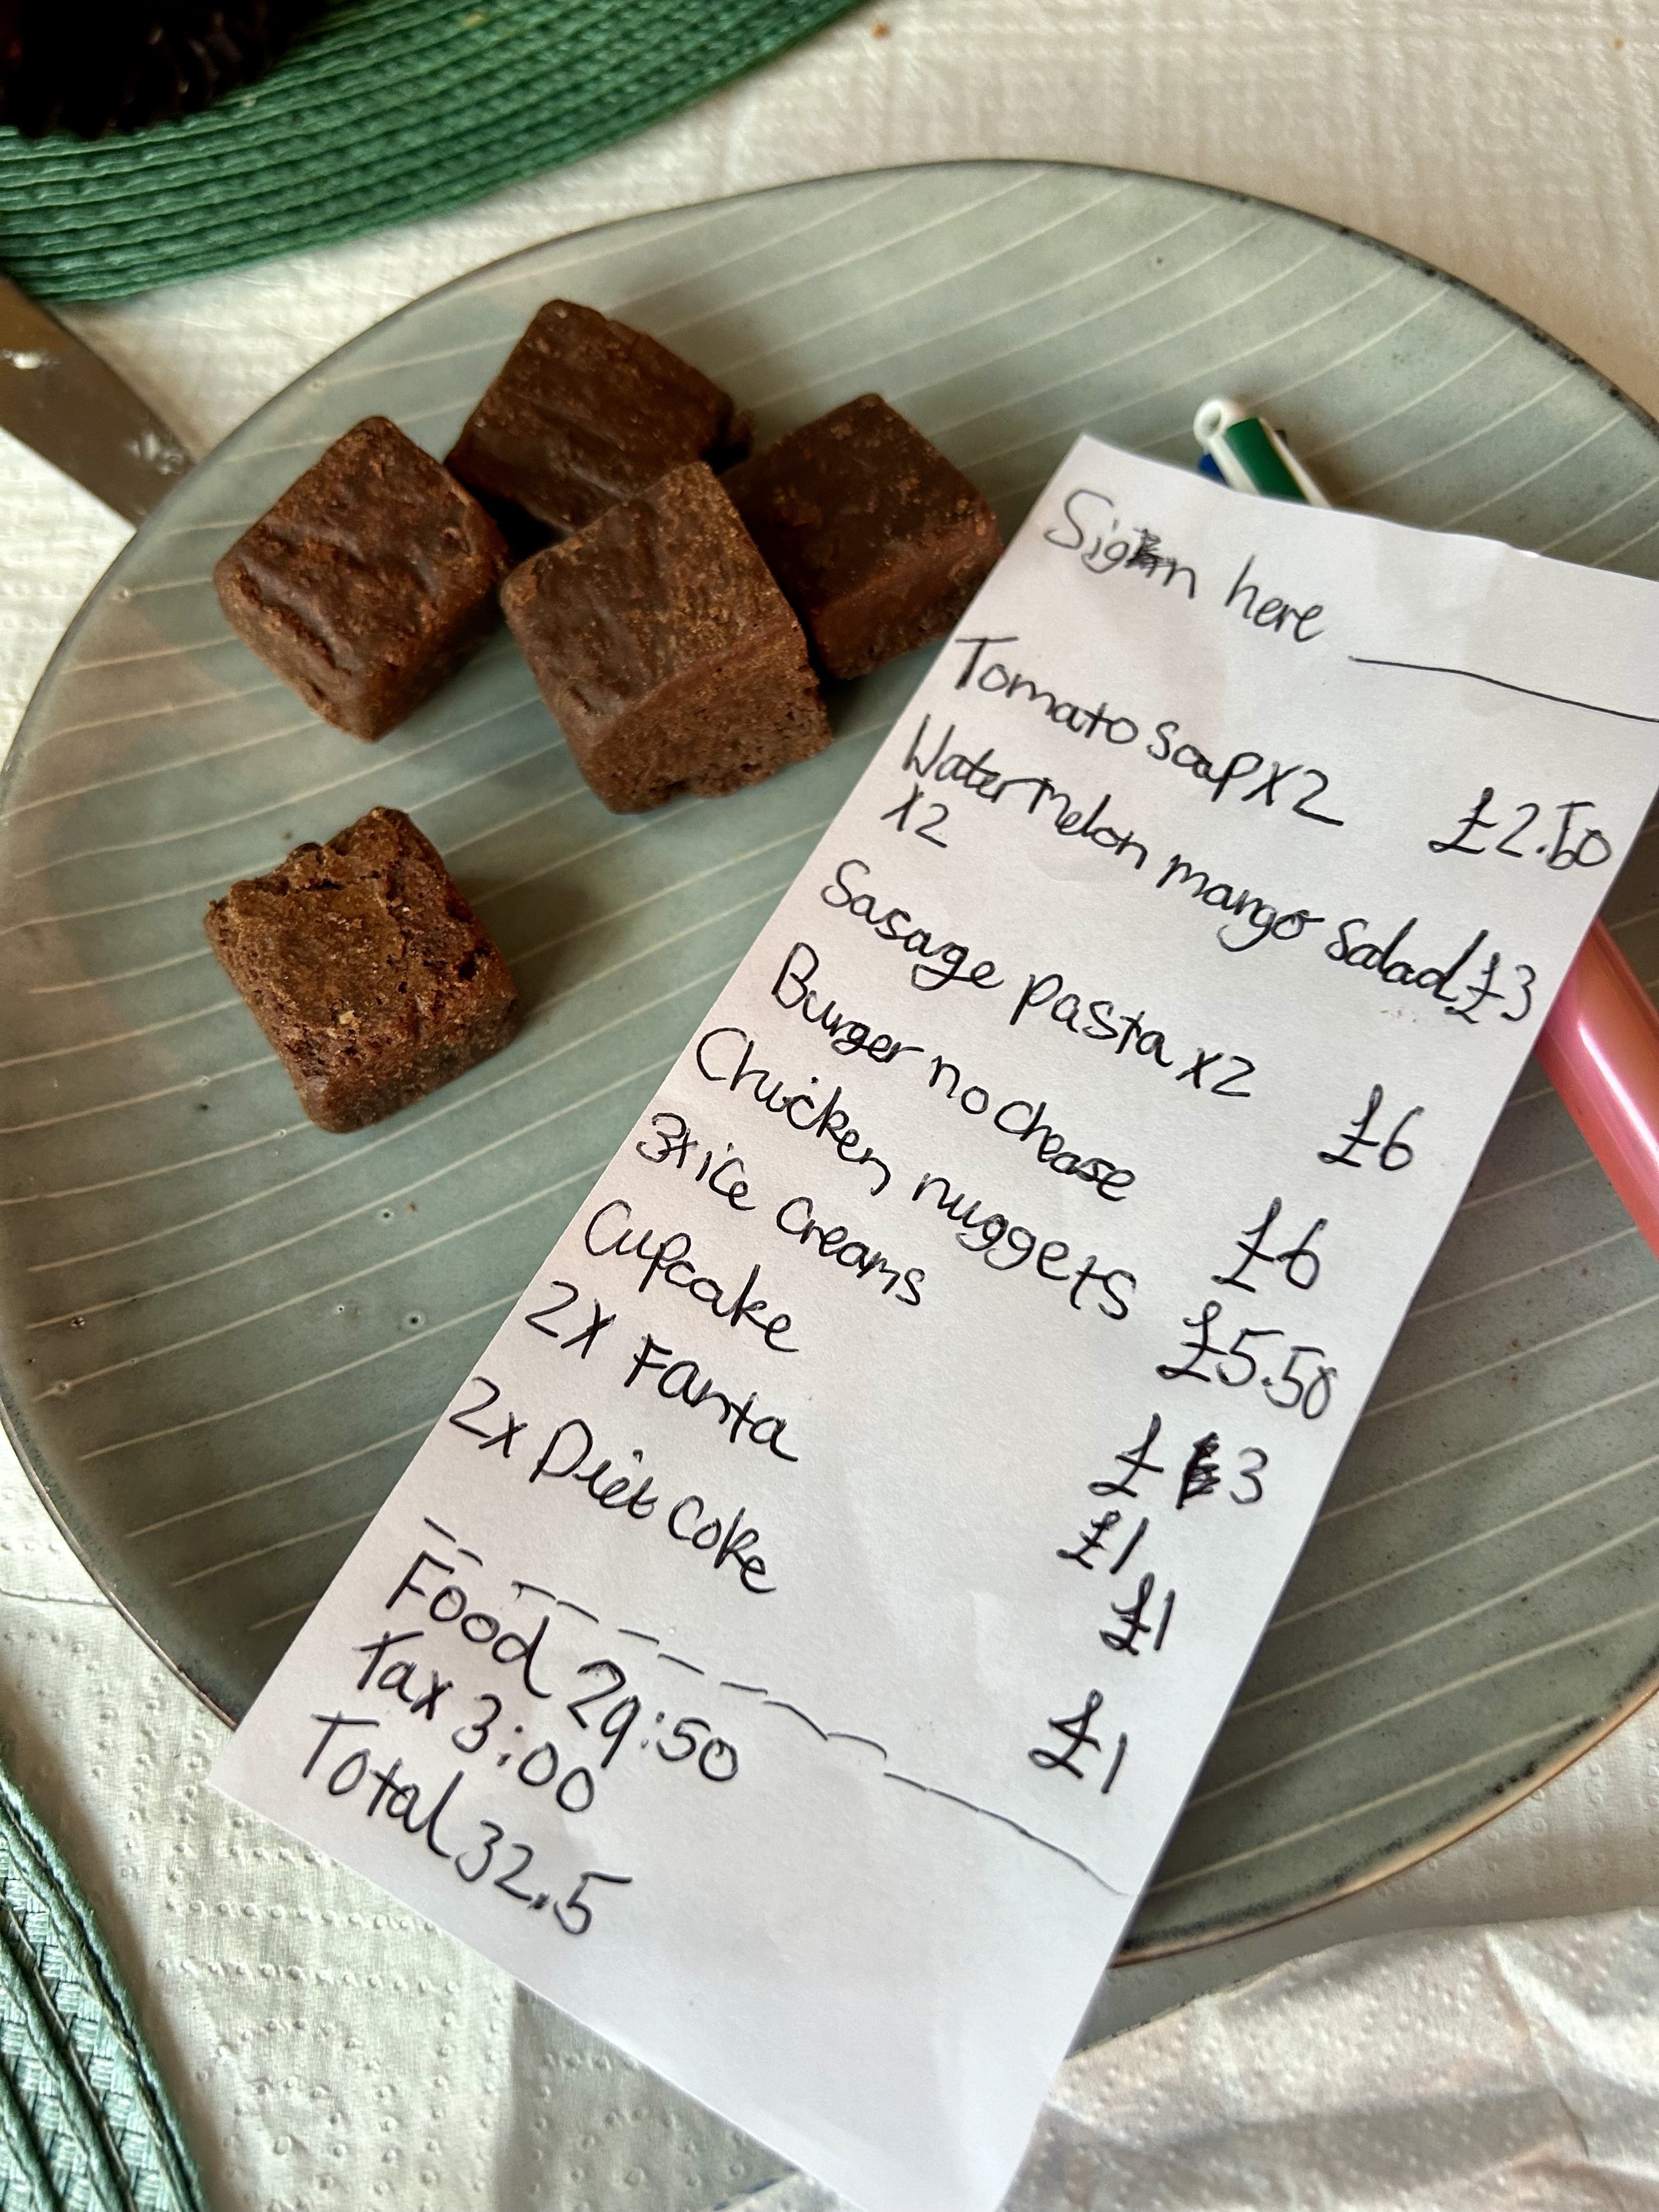 Sign here
Tomato Soap X2 £2.50
Watermelon mango Salad £3
X2
Sasage pasta x2 £6
Burger no chease £6
Chicken nuggets £5.50
3x ice creams £3
Cupcake £1
2X Fanta £1
2x Diet coke £1
Food 29:50
Tax 3:00
Total 32.5